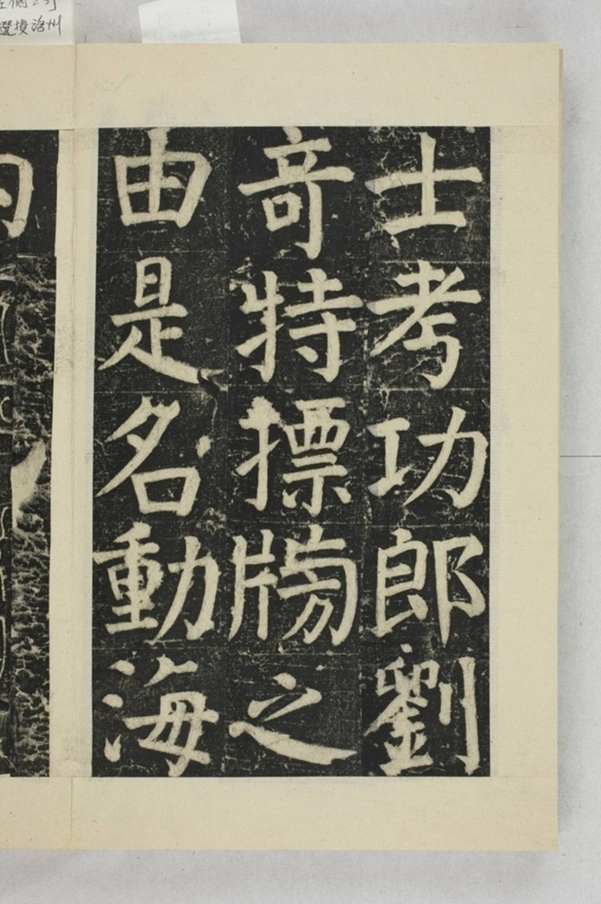 士考功郎劉
奇特摽牓之
由是名動海